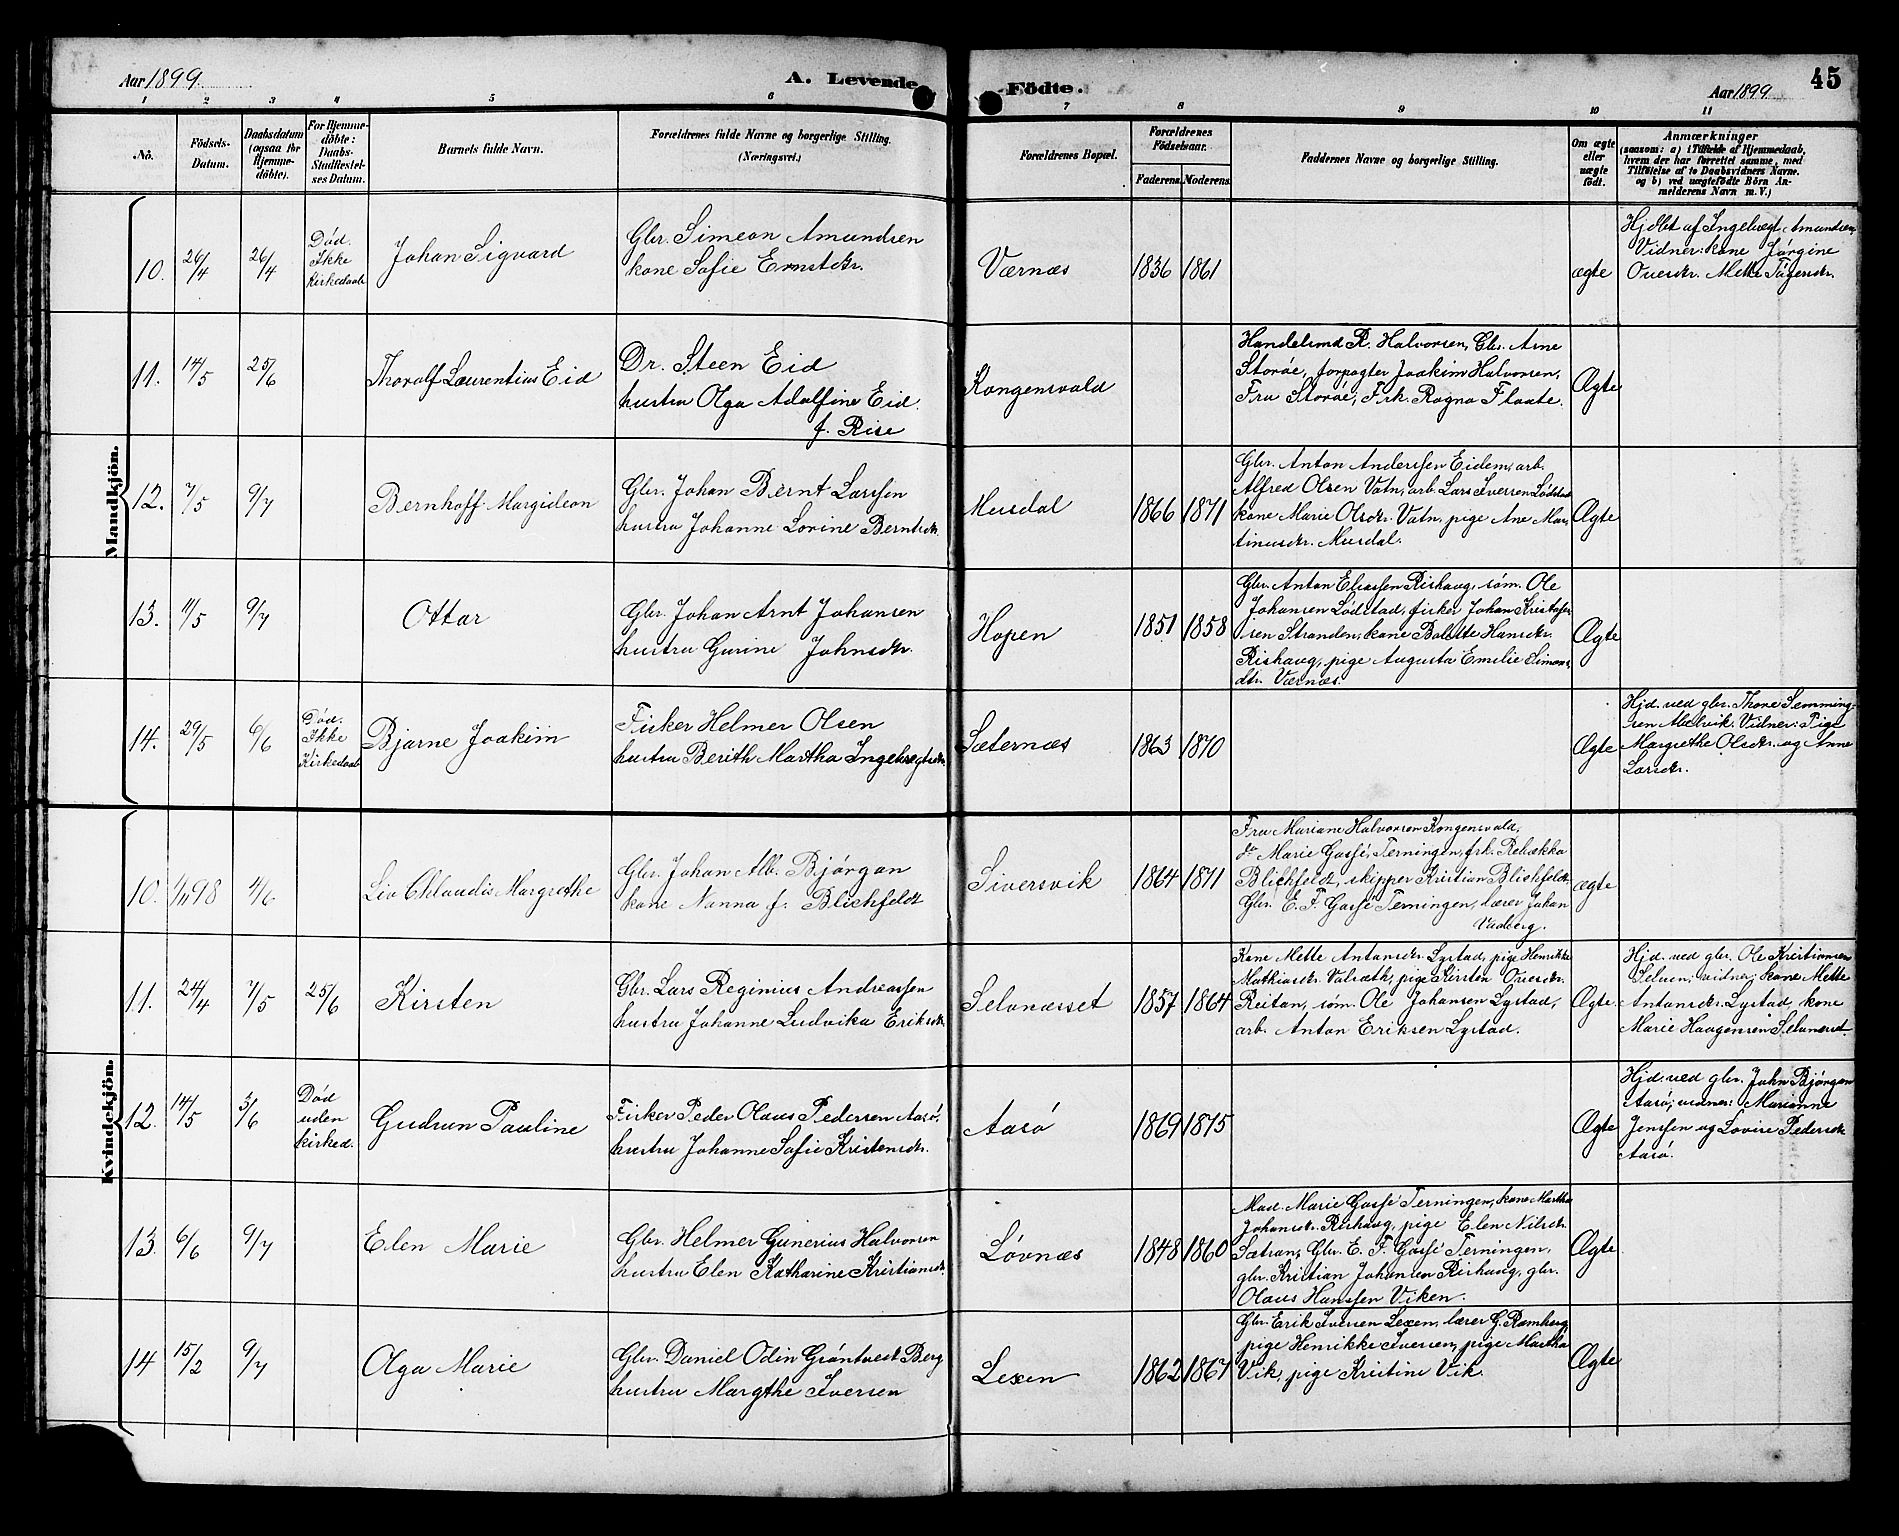 Aar 1899.
A. Levende
Födte.
Aar 1899
45
1 2 3 4 5 6 7 8 9 10 11
No.
Födsels-
Datum.
Daabsdatum
(ogsaa for
Hjemme-
döbte).
For Hjemme-
döbte:
Daabs-
Stadfæstel-
ses Datum.
Barnets fulde Navn.
Forældrenes fulde Navne og borgerlige Stilling.
(Næringsvei.)
Forældrenes Bopæl.
Forældrenes
Födselsaar.
Faderens. Moderens.
Faddernes Navne og borgerlige Stilling.
Om ægte
eller
uægte
födt.
Anmærkninger
(saasom: a) i Tilfælde af Hjemmedaab,
hvem der har forrettet samme, med
Tilföielse af to Daabsvidners Navne.
og b) ved uægtefödte Börn An-
melderens Navn m. V.)
Mandkjön.
10. 26/4 26/4
Død.
Ikke
Kirkedaab
Johan Sigvard
Gbr. Simeon Amundsen
kone Sofie Ernstdtr.
Værnæs
1836 1861
ægte
Hjdbt af Ingebregt Amundsen,
Vidner: kone Jørgine
Ovesdtr. Mette
11. 14/5 25/6
Thoralf Laurentius Eid
Dr. Steen Eid
hustru Olga Adolfine Eid.
f. Rise
Kongensvold
Handelsmd R. Halvorsen, Gbr. Arne
Storøe, forpagter Joakim Halvorsen,
Fru Storøe, Frk. Ragna Flaate.
Ægte
12. 7/5 9/7
Bernhoff Margideon
Gbr. Johan Bernt Larssen
hustru Johanne Lovine Berntsdtr.
Musdal
1866 1871
Gbr. Anton Anderssen Eidem, arb.
Alfred Olsen Vatn, arb. Lars Iversen Lødstad
kone Marie Olsdtr. Vatn, pige Ane Mar-
tinusdtr. Musdal.
Ægte
13. 11/5 9/7
Ottar
Gbr. Johan Arnt Johansen
hustru Gurine Johnsdtr.
Hopen
1851 1858
Gbr. Anton Eliassen Rishaug, søm. Ole
Johansen Lødstad, fisker Johan Kristofer-
sen Stranden, kone Bolette Hansdtr.
Rishaug, pige Augusta Emilie Simons-
dtr. Værnæs.
Ægte
14. 29/5 6/6
Død.
Ikke
Kirkedaab
Bjarne Joakim
Fisker Helmer Olsen
hustru Berith Martha Ingebregtsdtr.
Sæternæs
1863 1870
Ægte
Hjd. ved gbr. Thore Semming-
sen Aalvik. Vidner: Pige
Margrethe Olsdtr. og Anne
Larsdtr.
Kvindekjön.
10. 1/11 98 4/6
Liv Chlaudis Margrethe
Gbr. Johan Alb. Bjørgan
kone Nanna f. Blichfeldt
Siversvik
1864 1871
Fru Mariane Halvorsen Kongensvold,
do Marie Gasse, Terningen, frk. Rebekka
Blichfeldt, skipper Kristian Blichfeldt,
Gbr. E. F. Gasse Terningen, lærer Johan
Vadberg.
ægte
11. 24/4 7/5 25/6
Kirsten
Gbr. Lars Reginius Andreassen
hustru Johanne Ludvika Eriksdtr.
Selvnæsset
1857 1864
Kone Mette Antonsdtr. Lystad, pige Henrikke
Mathiasdtr. Valseth, pige Kirsten Ovesdtr.
Reitan, søm. Ole Johansen Lystad,
arb. Anton Eriksen Lystad.
Ægte.
Hjd. ved gbr. Ole Kristiansen
Selven, vidner: kone Mette
Antonsdtr. Lystad, kone
Marie Haagensen Selvnæsset.
12. 14/5 3/6
Død
uden
kirked.
Gudrun Pauline
Fisker Peder Olaus Pedersen Aasø.
hustru Johanne Sofie Kristensdtr.
Aasø
1869 1875
Ægte
Hjd. ved gbr. John Bjørgan
Aasø; vidner: Marianne
Jenssen og Lovise Pedersdtr.
Aasø.
13. 6/6 9/7
Elen Marie
Gbr. Helmer Gunerius Halvorsen
hustru Elen Katharine Kristiansdtr.
Løvnæs
1848 1860
Mad. Marie Gasse Terningen, kone Martha
Johansdtr. Rishaug, pige Elen Nilsdtr.
Sætran, Gbr. E. F. Gasse Terningen,
gbr. Kristian Johansen Rishaug, gbr.
Olaus Hanssen Viken.
Ægte
14 15/2 9/7
Olga Marie
Gbr. Daniel Odin Gröntvedt Berg
hustru Margthe Iversen
Lexen
1862 1867
Gbr. Erik Iversen Lexen, lærer G. Ramberg,
pige Henrikke Iversen, pige Martha
Vik, pige Kristine Vik.
Ægte